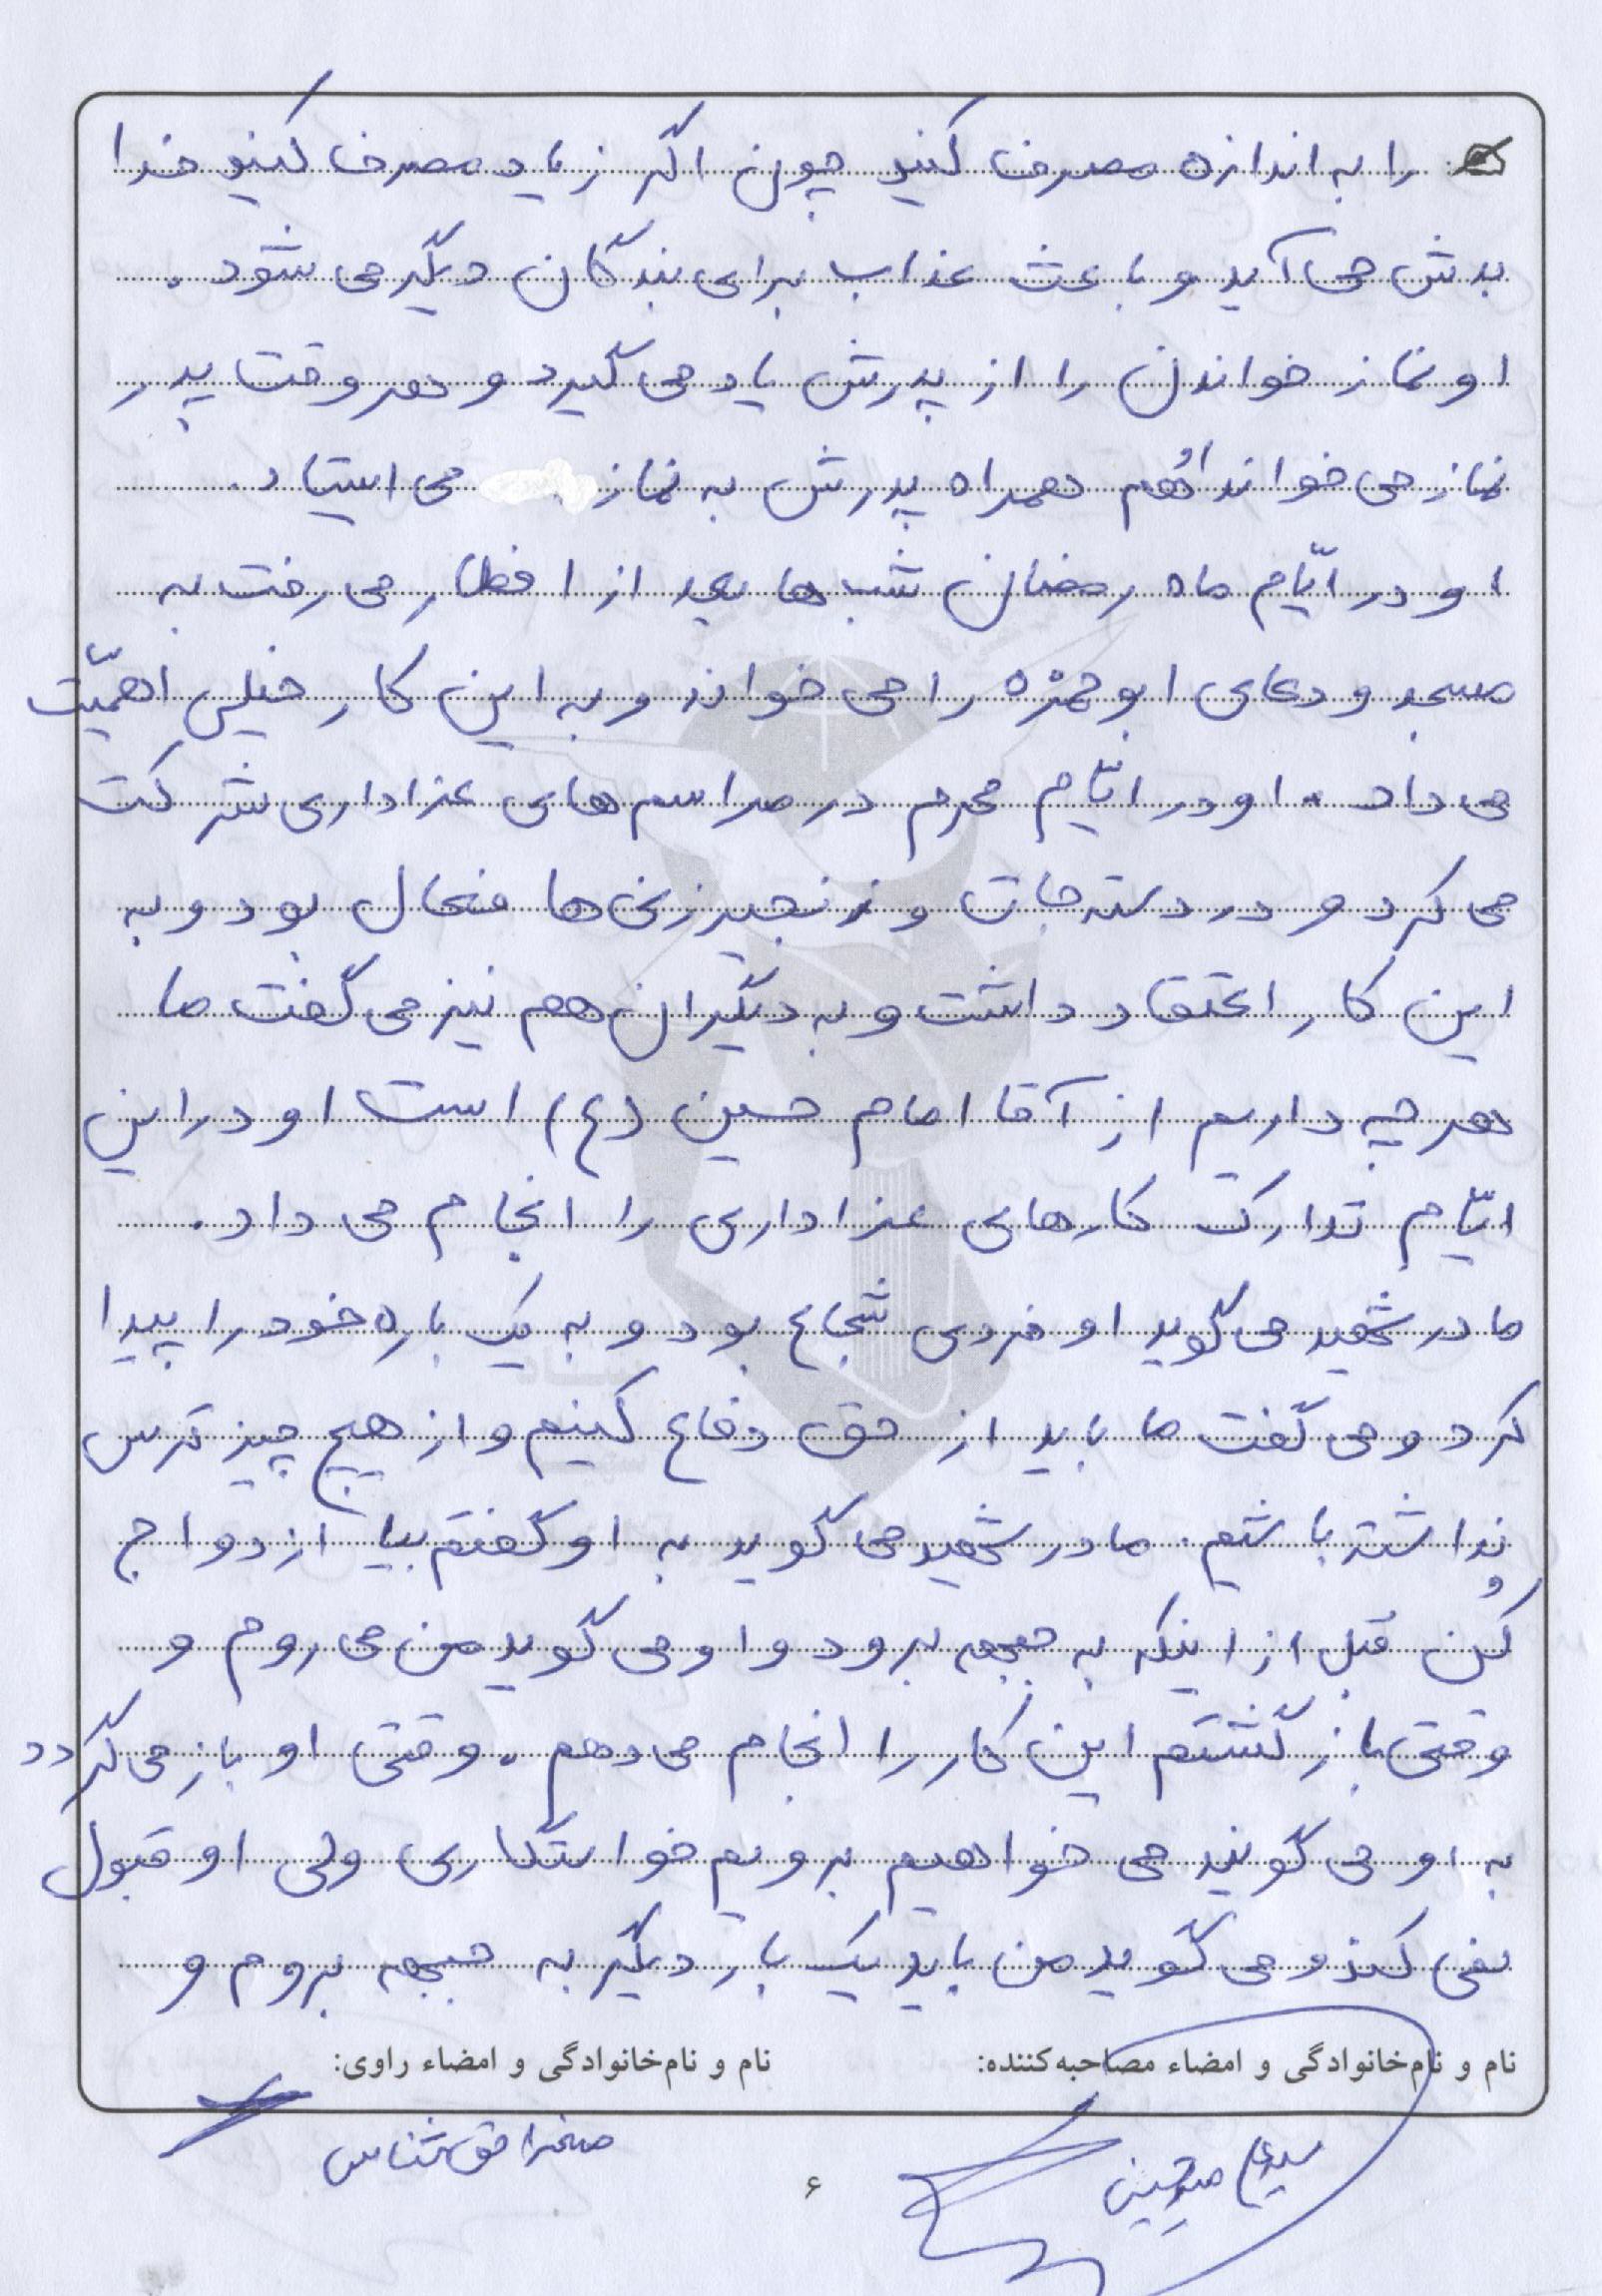 را به اندازه مصرف کنید چون اگر زیاد مصرف کنید خدا
بدش می آید و باعث عذاب برای بندگان دیگر می شود.
او نماز خواندن را از پدرش یاد می گیرد و هر وقت پدر
نماز می خواند اُهم همراه پدرش به نماز می ایستاد.
او در ایّام ماه رمضان شب ها بعد از افطار می رفت به
مسجد و دعای ابوحمزه را می خواند و به این کار خیلی اهمیّت
می داد. او در ایّام محرم در مراسم های عزاداری شرکت
می کرد و در دسته جات و زنجیرزنی ها فعال بود و به
این کار اعتقاد داشت و به دیگران هم نیز می گفت ما
هر چه داریم از آقا امام حسین (ع) است او در این
ایّام تدارک کارهای عزاداری را انجام می داد.
مادر شهید می گوید او فردی شجاع بود و به یک باره خود را پیدا
کرد و می گفت ما باید از حق دفاع کنیم و از هیچ چیز ترس
نداشته باشیم. مادر شهید می گوید به او گفتم بیا ازدواج
کُن قبل از اینکه به جبهه برود و او می گوید من می روم و
وقتی بازگشتم این کار را انجام می دهم. وقتی او باز می گردد
به او می گویند می خواهیم برویم خواستگاری ولی او قبول
نمی کند و می گوید من باید یک بار دیگر به جبهه بروم و
نام و نام‌خانوادگی و امضاء مصاحبه‌کننده: نام و نام‌خانوادگی و امضاء راوی:
صغرا حق شناس
۶